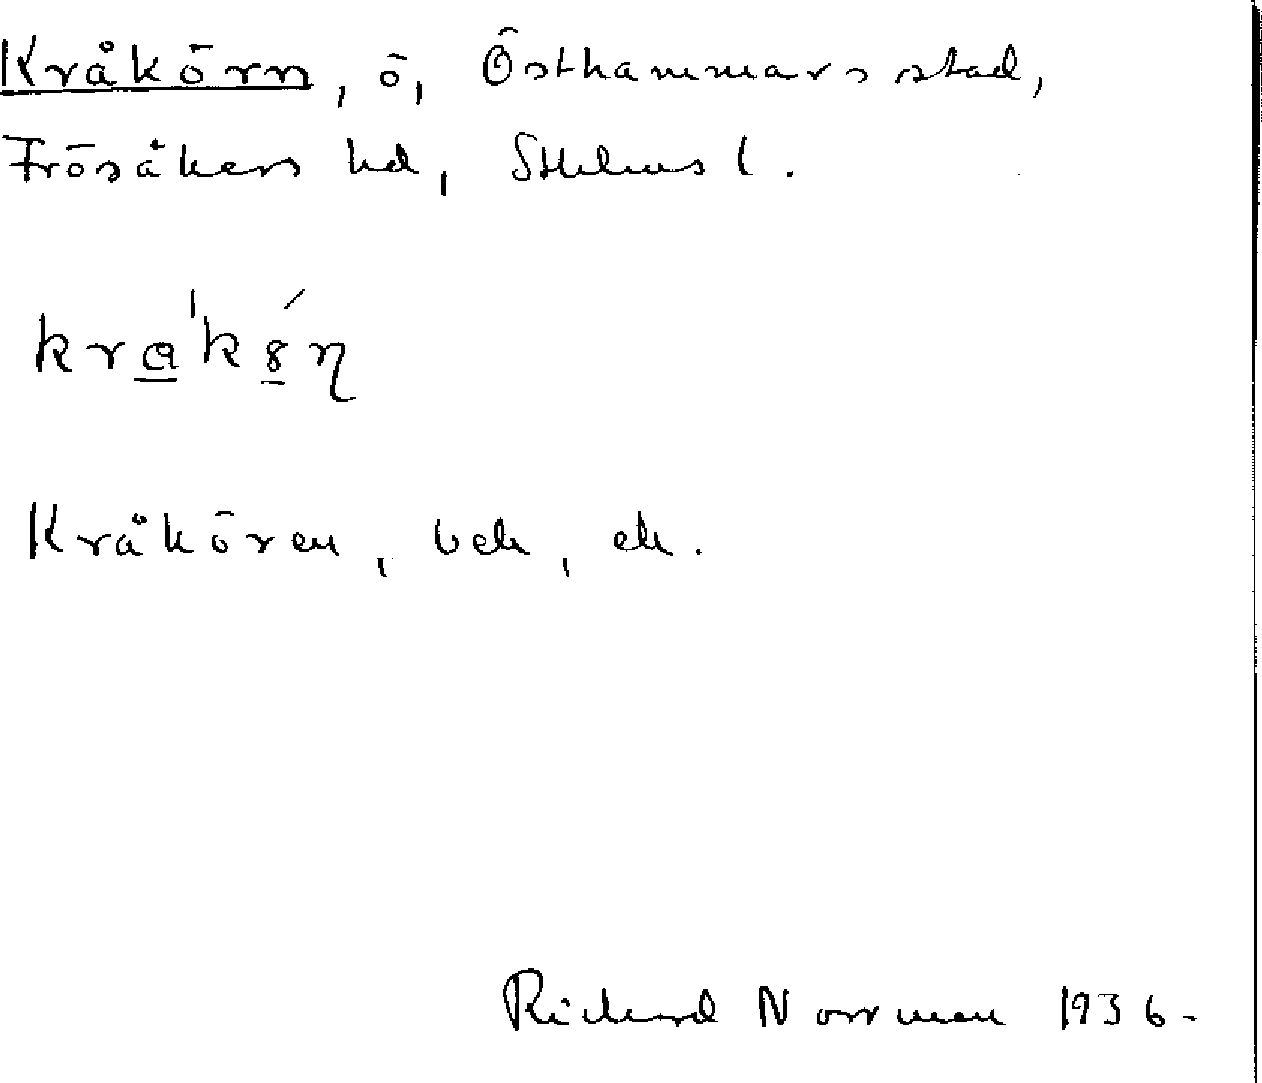 Kråkörn, ö, Östhammars stad,
Frösåkers hd, Sthlms l.
kra̲'kö̲́ɳ
Kråkören, bek, ek.
Rickard Norrman 1936.